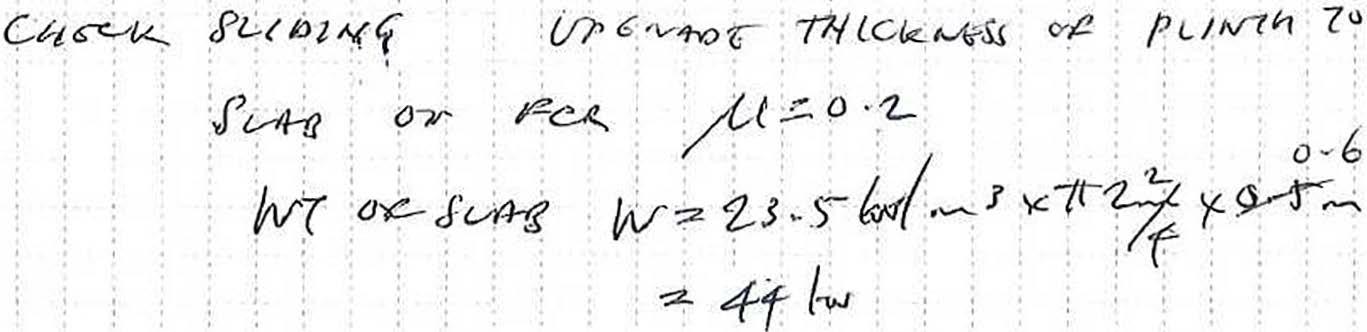 CHECK SLIDING UPGRADE THICKNESS OF PLINTH TO
SLAB ON FCR μ = 0.2
0.6
WT OF SLAB W = 23.5 kN/m³ x π 2²/4 x 0.5 m
= 44 kN